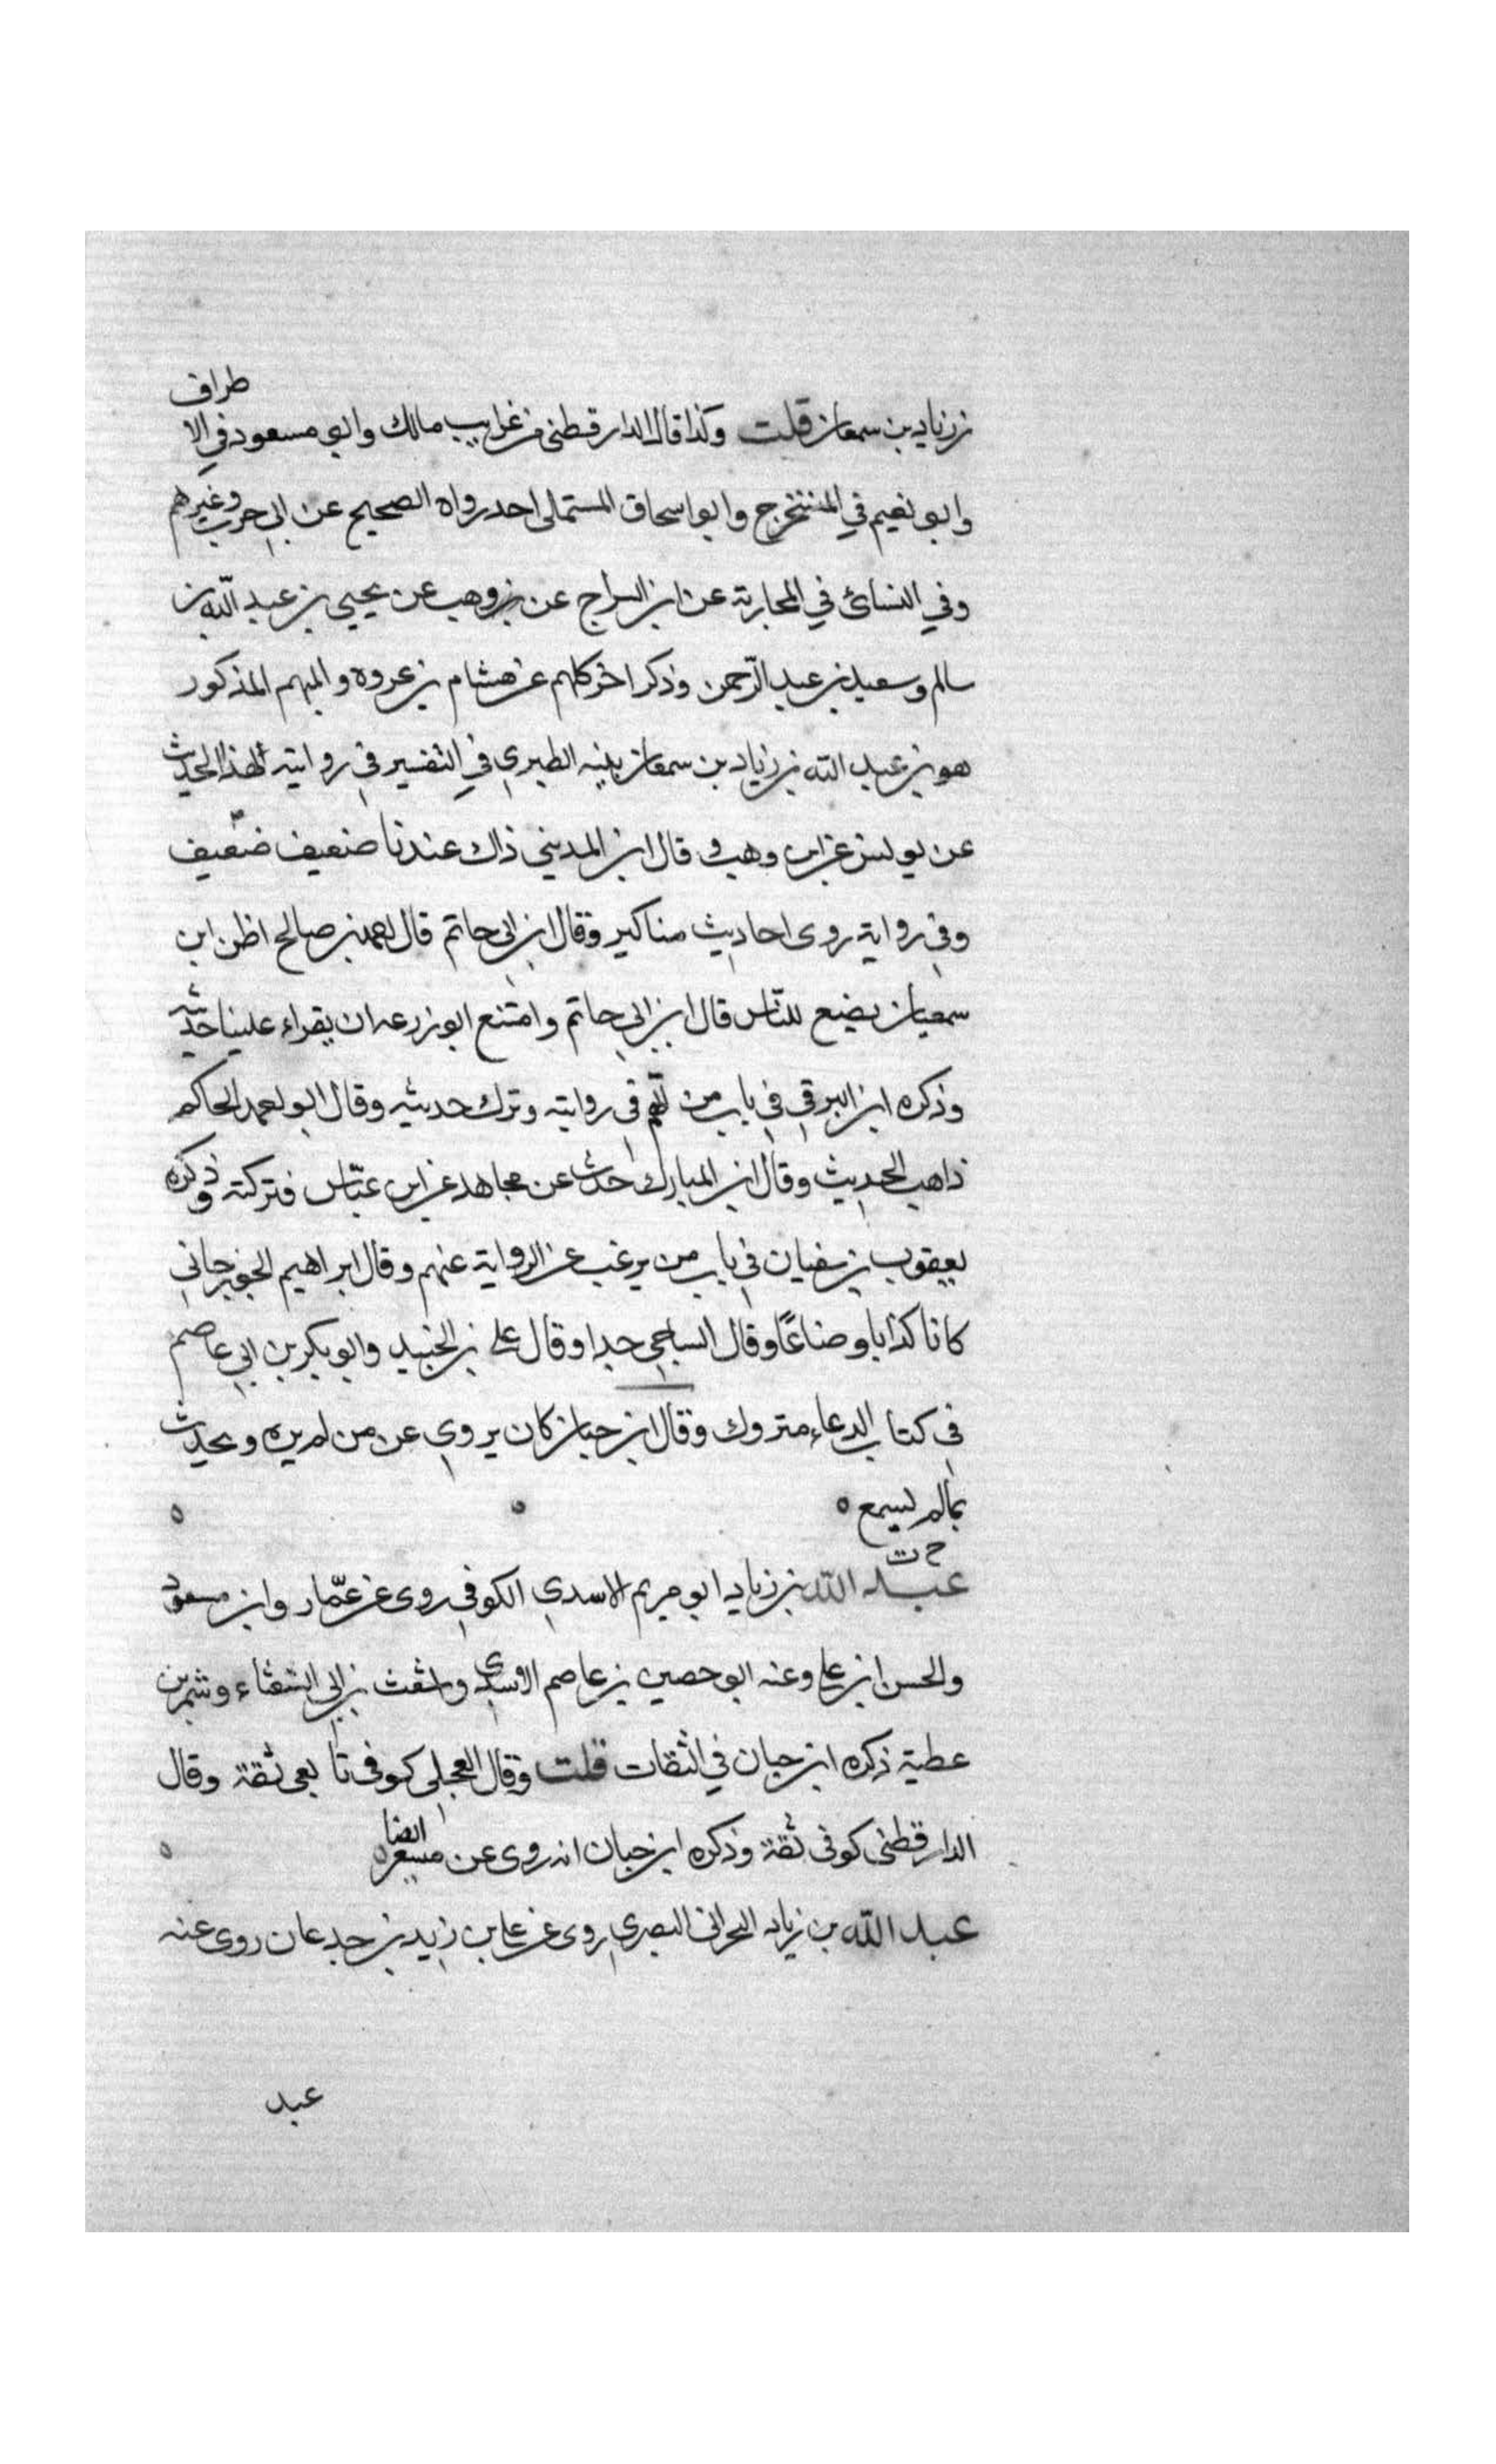 بن زياد بن سمعان قلت وكذا قال الدارقطني في غرايب مالك وابو مسعود في الاطراف
وابو نعيم في المستخرج وابو اسحاق المستملى احد رواه الصحيح عن ابى حرب وغيرهم
وفي النسائ في المحاربة عن ابن السراج عن بن وهب عن يحيى بن عبد الله بن
سالم وسعيد بن عبد الرحمن وذكر اخر كلهم عن هشام بن عروه والمبهم المذكور
هو بن عبد الله بن زياد بن سمعان بينه الطبري في التفسير في روايته لهذا الحديث
عن يونس عن ابن وهب وقال ابن المديني ذاك عندنا ضعيف ضعيف
وفي رواية روى احاديث مناكير وقال ابن ابى حاتم قال احمد بن صالح اظن ابن
سمعان يضع للناس قال ابن ابي حاتم وامتنع ابو زرعه ان يقراء علينا حديثه
وذكره ابن البرقي في باب من اتهم في روايته وترك حديثه وقال ابو احمد الحاكم
ذاهب الحديث وقال ابن المبارك حدث عن مجاهد عن ابن عباس فتركته وذكره
يعقوب بن سفيان في باب من يرغب عن الرواية عنهم وقال ابراهيم الجوزجاني
كانا كذابا وضاعًا وقال الساجي جدا وقال على بن الجنيد وابو بكر بن ابي عاصم
في كتاب الدعاء متروك وقال ابن حبان كان يروي عن من لم يره ويحدث
بمالم يسمع ه
خ ت
عبد الله بن زياد ابو مريم الاسدي الكوفي روى عن عمار وابن مسعود
والحسن ابن على وعنه ابو حصين بن عاصم الاسدي واشعث بن ابي الشعثاء وشمر بن
عطية ذكره ابن حبان في الثقات قلت وقال العجلى كوفى تا بعى ثقة وقال
الدارقطنى كوفى ثقة وذكره ابن حبان انه روى عن مسعر ايضا ه
عبد الله بن زياد البحرانى البصري روى عن على بن زيد بن جدعان روى عنه
عبد